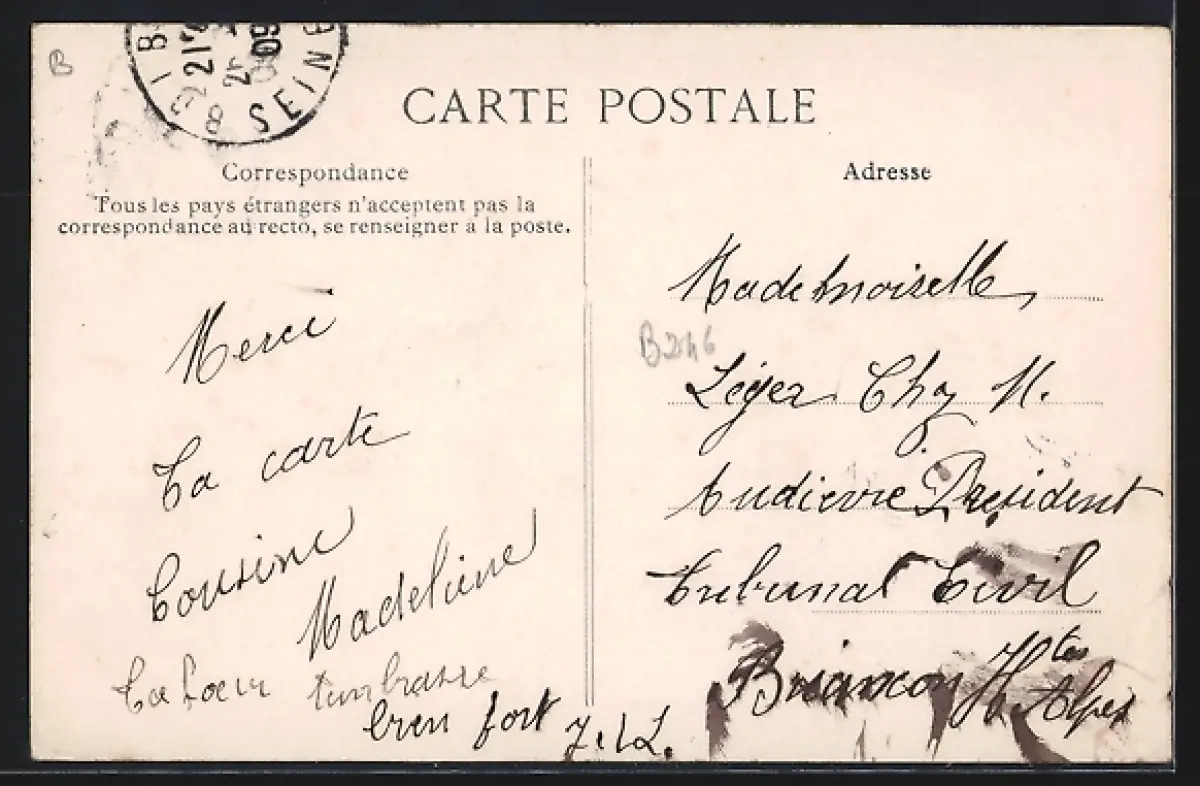 B
SEINE
CARTE POSTALE
Correspondance
Tous les pays étrangers n'acceptent pas la
correspondance au recto, se renseigner à la poste.
Merci
Ta carte
Cousine
Madeleine
Ta Soeur t'embrasse
bien fort J. L.
Adresse
Mademoiselle,
B246
Léger Chz M.
Audierre President
Tribunal Civil
Briancon Htes
Alpes